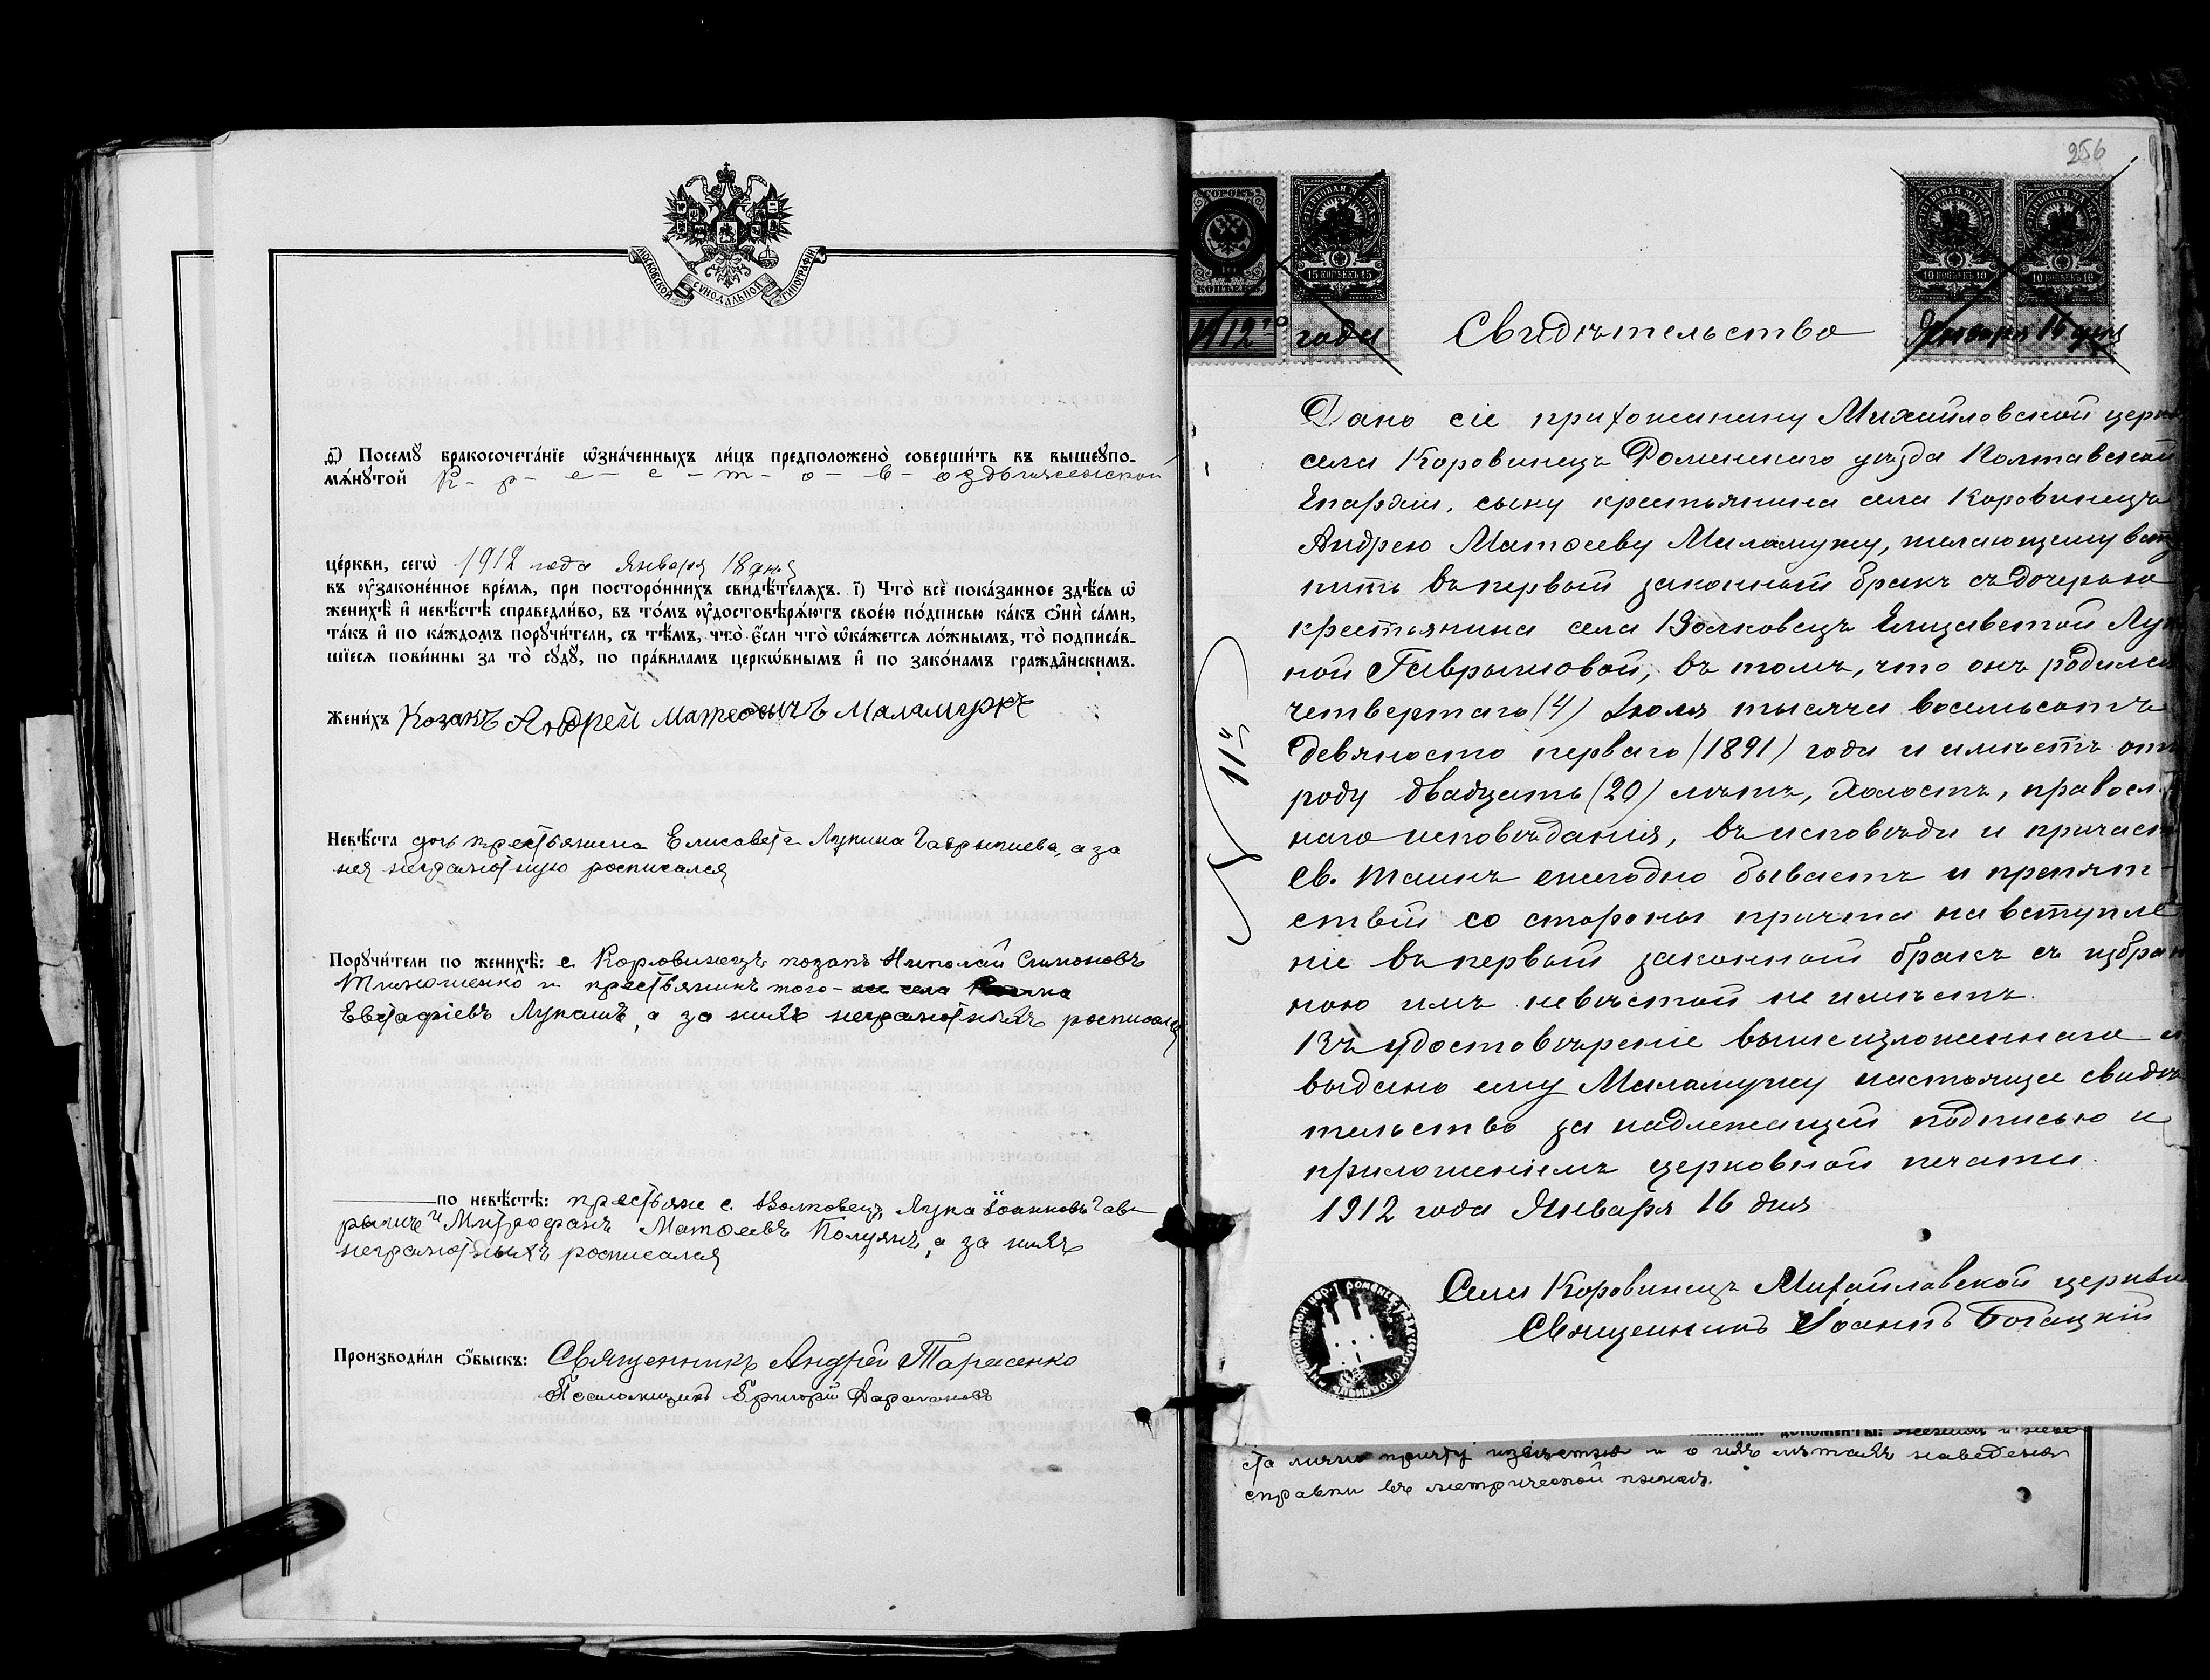 МОСКОВСКОЙ СѴНОДАЛЬНОЙ ТИПОГРАФІИ.
Посемꙋ̀ бракосочета́нїе ѡ҆зна́ченныхъ ли́цъ предположено̀ соверши́ть въ вышеꙋпо-
мѧ́нꙋтой К-р-е-с-т-о-в-оздвиженской
це́ркви, сегѡ̀ 1912 года Января 18 дня
въ ᲂу҆зако́ненное вре́мѧ, при посторо́ннихъ свидѣ́телѧхъ. і҃) Что̀ всѐ пока́занное здѣ́сь ѡ҆
женихѣ̀ и҆ невѣ́стѣ справедли́во, въ то́мъ ᲂу҆достовѣрѧ́ютъ свое́ю по́дписью ка́къ ѻ҆нѝ са́ми,
та́къ и҆ по ка́ждомъ порꙋчи́тели, съ тѣ́мъ, что̀ є҆́сли что̀ ѡ҆ка́жетсѧ ло́жнымъ, то̀ подписа́в-
шїесѧ пови́нны за то̀ сꙋдꙋ̀, по пра́виламъ церкѡ́внымъ и҆ по зако́намъ гражда́нскимъ.
Жени́хъ Козакъ Андрей Матѳеовичъ Маламужъ
Невѣ́ста дочь крестьянина Елисавета Лукина Гаврышева, а за
нея неграмотную росписался
Порꙋчи́тели по женихѣ̀: с. Коровинецъ козакъ Николай Симоновъ
Тимошенко и крестьянинъ того-же села
Евстафіевъ Лукашъ, а за нихъ неграмотныхъ росписался
по невѣ́стѣ: крестьяне с. Волковецъ Лука Іоанновъ Гав-
рышъ и Митрофанъ Матѳеевъ Полуянъ, а за нихъ
неграмотныхъ росписался
Производи́ли ѻ҆́быскъ: Священникъ Андрей Тарасенко
Псаломщикъ Григорій
256
СОРОКЪ
КОПѢЕКЪ
ГЕРБОВАЯ МАРКА
15 КОПѢЕКЪ 15
ГЕРБОВАЯ МАРКА
10 КОПѢЕКЪ 10
ГЕРБОВАЯ МАРКА
10 КОПѢЕКЪ 10
1912 года
Января 16 дня
Свидѣтельство
Дано сіе прихожанину Михайловской церк
села Коровинецъ Роменскаго уѣзда Полтавской
Епархіи, сыну крестьянина села Коровинецъ
Андрею Матѳееву Маламужу, желающему всту
пить въ первый законный бракъ съ дочерью
крестьянина села Волковецъ Елизаветой Лу
ной Гаврышовой, въ томъ, что онъ родился
четвертаго (4) Іюля тысяча восемьсотъ
девяносто перваго (1891) года и имѣетъ отъ
роду двадцать (20) лѣтъ, холостъ, правосл
наго исповѣданія, въ исповѣди и причаст
Св. Таинъ ежегодно бываетъ и препят-
ствій со стороны причта на вступле
ніе въ первый законный бракъ съ избран
ною имъ невѣстой не имѣетъ.
Въ удостовѣреніе вышеизложеннаго и
выдано ему Маламужу настоящее свидѣ
тельство за надлежащей подписью и
приложеніемъ церковной печати.
1912 года Января 16 дня
№ 11й
Села Коровинецъ Михайловской церкви
Священникъ Іоаннъ Богацкій
документы: Женихъ и невѣ
ста лично причту извѣстны и о ихъ лѣтахъ наведены
справки въ метрической книгѣ.